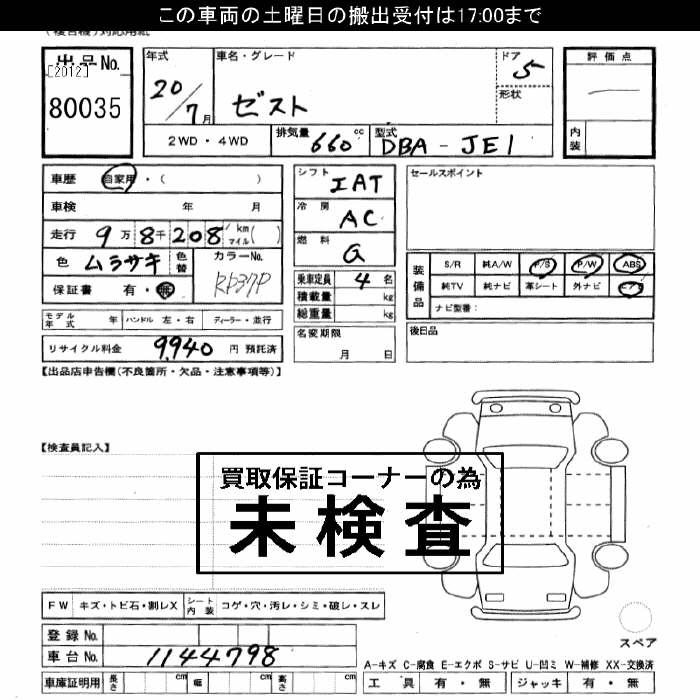 この車両の土曜日の搬出受付は17:00まで
出品No.
[2012]
80035
年式
20/7月
車名・グレード
ゼスト
ドア
5
形状
評価点
内装
2WD・4WD
排気量 660 cc
型式 DBA-JE1
車歴 自家用・( )
車検 年 月
走行 9万8千208 km マイル( )
色 ムラサキ 色替
カラーNo.
RP37P
保証書 有・無
モデル年式 年 ハンドル 左・右 ディーラー・並行
リサイクル料金 9,940 円 預託済
シフト IAT
冷房 AC
燃料 G
乗車定員 4 名
積載量 kg
総重量 kg
名変期限
月 日
セールスポイント
装備品
S/R 純A/W P/S P/W ABS
純TV 純ナビ 革シート 外ナビ エアB
ナビ型番:
後日品
【出品店申告欄(不良箇所・欠品・注意事項等)】
【検査員記入】
買取保証コーナーの為
未検査
FW キズ・トビ石・割レX シート内装 コゲ・穴・汚レ・シミ・破レ・スレ
登録No.
車台No. 1144798
車庫証明用 長さ cm 幅 cm 高さ cm
スペア
A-キズ C-腐食 E-エクボ S-サビ U-凹ミ W-補修 XX-交換済
工具 有・無 ジャッキ 有・無